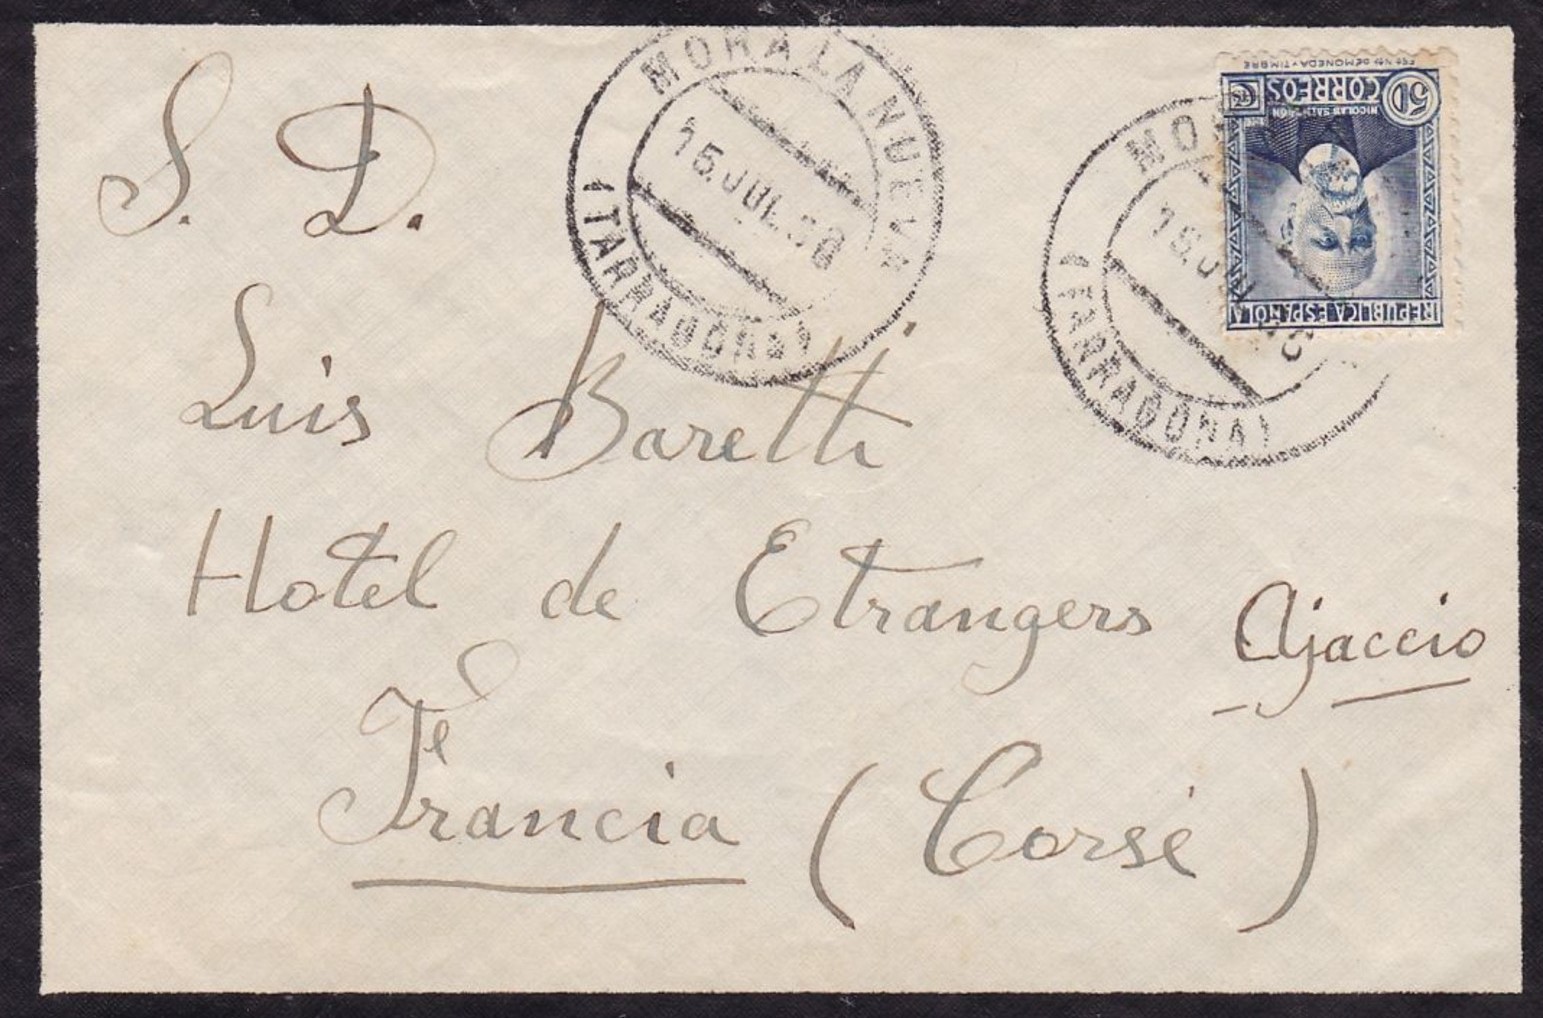 MORA LA NUEVA
15.JUL.36
(TARRAGONA)
REPUBLICA ESPAÑOLA
NICOLAS SALMERON
50 CTS CORREOS
FCA NAL DE MONEDA Y TIMBRE
MO
15.JUL
(TARRAGONA)
S. D.
Luis Baretti
Hotel de Etrangers Ajaccio
Francia (Corse)